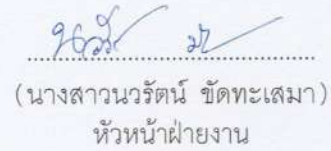 (นางสาวนวรัตน์ ขัดทะเสมา)
หัวหน้าฝ่ายงาน